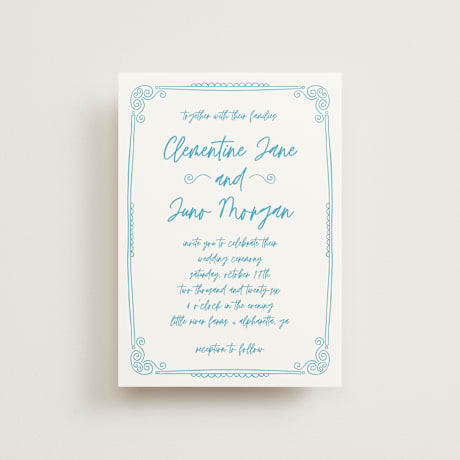 together with their families
Clementine Jane
and
Juno Morgan
invite you to celebrate their
wedding ceremony
saturday, october 17th
two thousand and twenty-six
6 o'clock in the evening
little river farms • alpharetta, ga
reception to follow